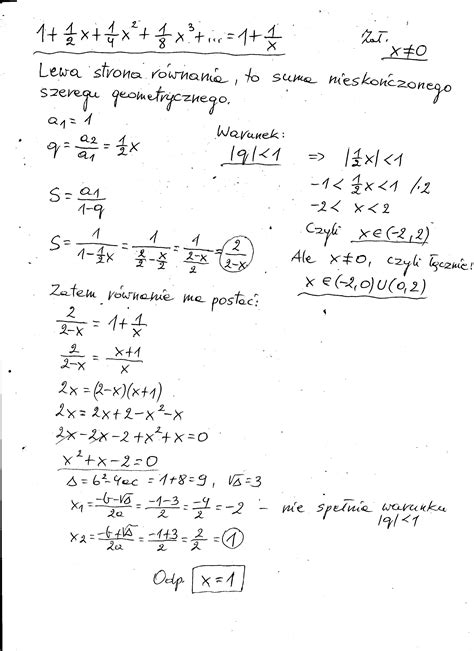 1+½x+¼x²+⅛x³+...=1+1/x
Zał. x≠0
Lewa strona równania, to suma nieskończonego
szeregu geometrycznego.
a₁=1
q=a₂/a₁=½x
Warunek:
|q|<1 => |½x|<1
-1<½x<1 /·2
-2<x<2
Czyli x∈(-2,2)
Ale x≠0, czyli łącznie:
x∈(-2,0)∪(0,2)
S=a₁/(1-q)
S=1/(1-½x)=1/(2/2-x/2)=1/((2-x)/2)=2/(2-x)
Zatem równanie ma postać:
2/(2-x)=1+1/x
2/(2-x)=(x+1)/x
2x=(2-x)(x+1)
2x=2x+2-x²-x
2x-2x-2+x²+x=0
x²+x-2=0
Δ=b²-4ac=1+8=9, √Δ=3
x₁=(-b-√Δ)/2a=(-1-3)/2=-4/2=-2 - nie spełnia warunku
|q|<1
x₂=(-b+√Δ)/2a=(-1+3)/2=2/2=1
Odp. x=1